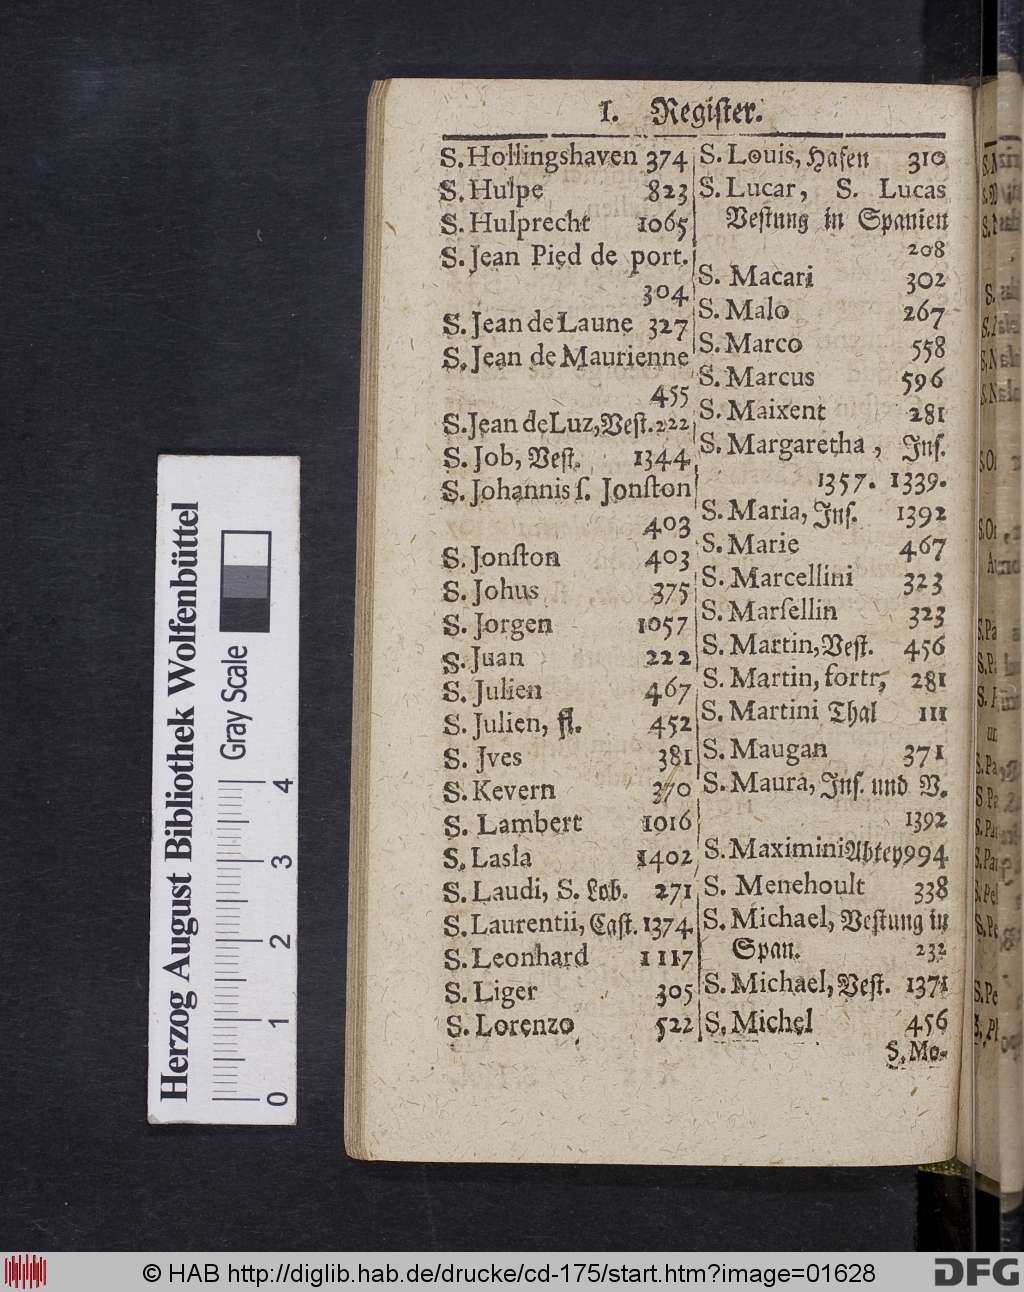 I. Register.
S. Hollingshaven 374
S. Hulpe 823
S. Hulprecht 1065
S. Jean Pied de port.
304
S. Jean de Laune 327
S. Jean de Maurienne
455
S. Jean de Luz, Vest. 222
S. Job, Vest. 1344
S. Johannis s. Jonſton
403
S. Jonſton 403
S. Johus 375
S. Jorgen 1057
S. Juan 222
S. Julien 467
S. Julien, fl. 452
S. Jves 381
S. Kevern 370
S. Lambert 1016
S. Lasla 1402
S. Laudi, S. Lob. 271
S. Laurentii, Caſt. 1374
S. Leonhard 1117
S. Liger 305
S. Lorenzo 522
S. Louis, Hafen 310
S. Lucar, S. Lucas
Veſtung in Spanien
208
S. Macari 302
S. Malo 267
S. Marco 558
S. Marcus 596
S. Maixent 281
S. Margaretha, Inſ.
1357. 1339.
S. Maria, Inſ. 1392
S. Marie 467
S. Marcellini 323
S. Marſellin 323
S. Martin, Veſt. 456
S. Martin, fortr, 281
S. Martini Thal 111
S. Maugan 371
S. Maura, Inſ. und V.
1392
S. Maximini Abtey 994
S. Menehoult 338
S. Michael, Veſtung in
Span. 232
S. Michael, Veſt. 1371
S. Michel 456
S. Mo-
Herzog August Bibliothek Wolfenbüttel
Gray Scale
0 1 2 3 4
© HAB http://diglib.hab.de/drucke/cd-175/start.htm?image=01628
DFG